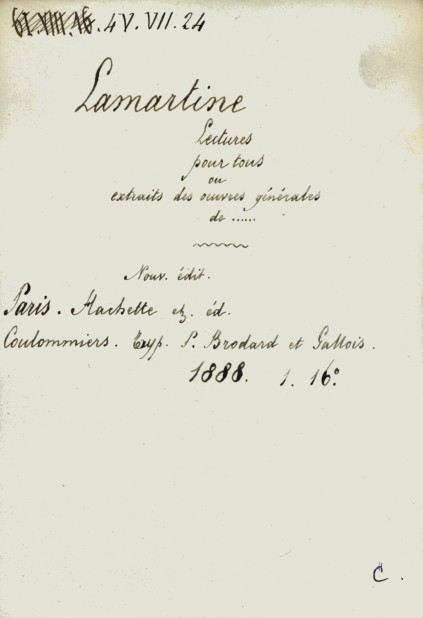 61.XIII.16.4V.VII.24
Lamartine
Lectures
pour tous
ou
extraits des œuvres générales
de ......
Nouv. édit.
Paris. Hachette ez. éd.
Coulommiers. Typ. P. Brodard et Gallois.
1888. 1. 16º
C.